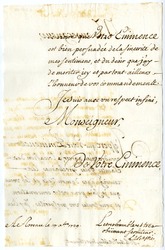 que Vôtre Eminence
est bien persuadée de la sincerité de
mes sentimens, et du desir que j'ay
de meriter icy et partout ailleurs
l'honneur de vos commandements.
Je suis avec un respect infini,
Monseigneur,
De Vôtre Eminence
A Rome le
Le tres humble et tres
obeissant serviteur